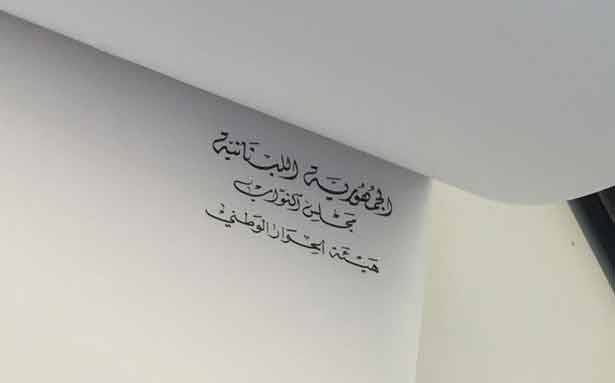 الجمهورية اللبنانية
مجلس النواب
هيئة الحوار الوطني